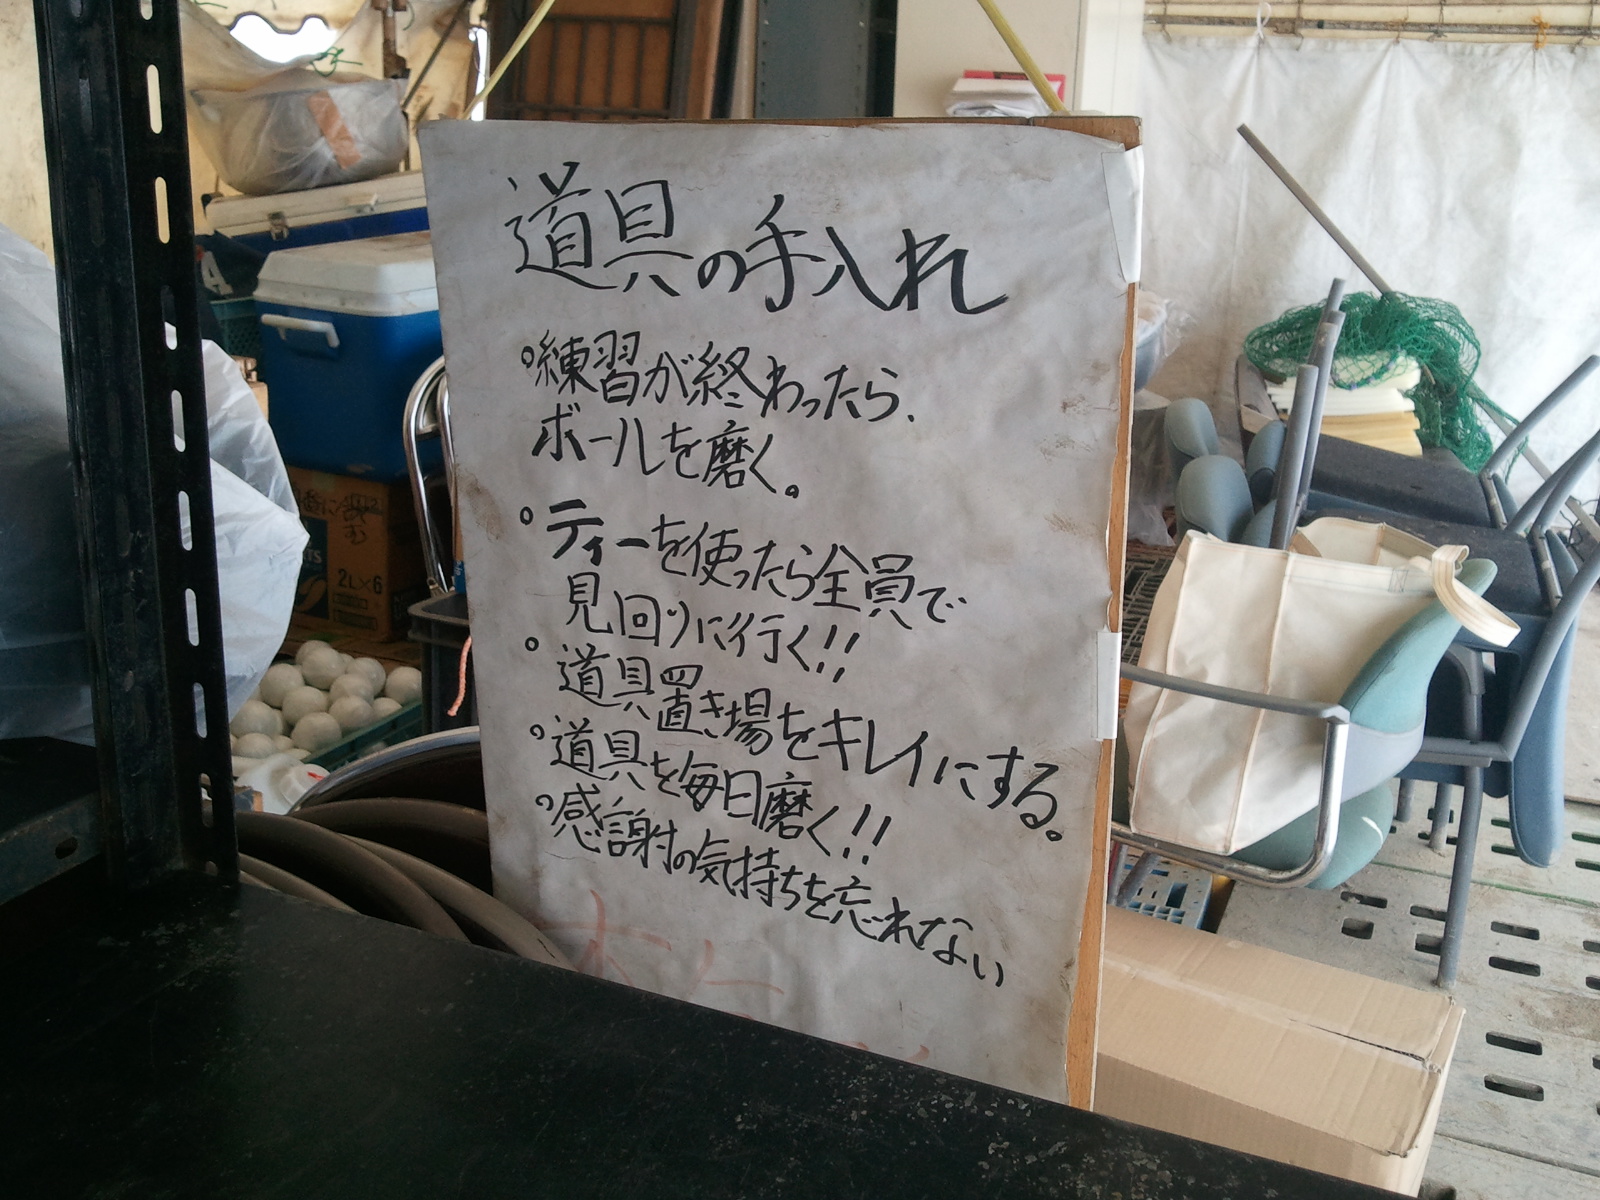 道具の手入れ
°練習が終わったら、
ボールを磨く。
°ティーを使ったら全員で
見回りに行く!!
°道具置き場をキレイにする。
°道具を毎日磨く!!
°感謝の気持ちを忘れない
2L×6